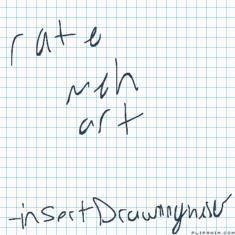 rate
meh
art
-insertDrawnynew
FLIPANIM.COM